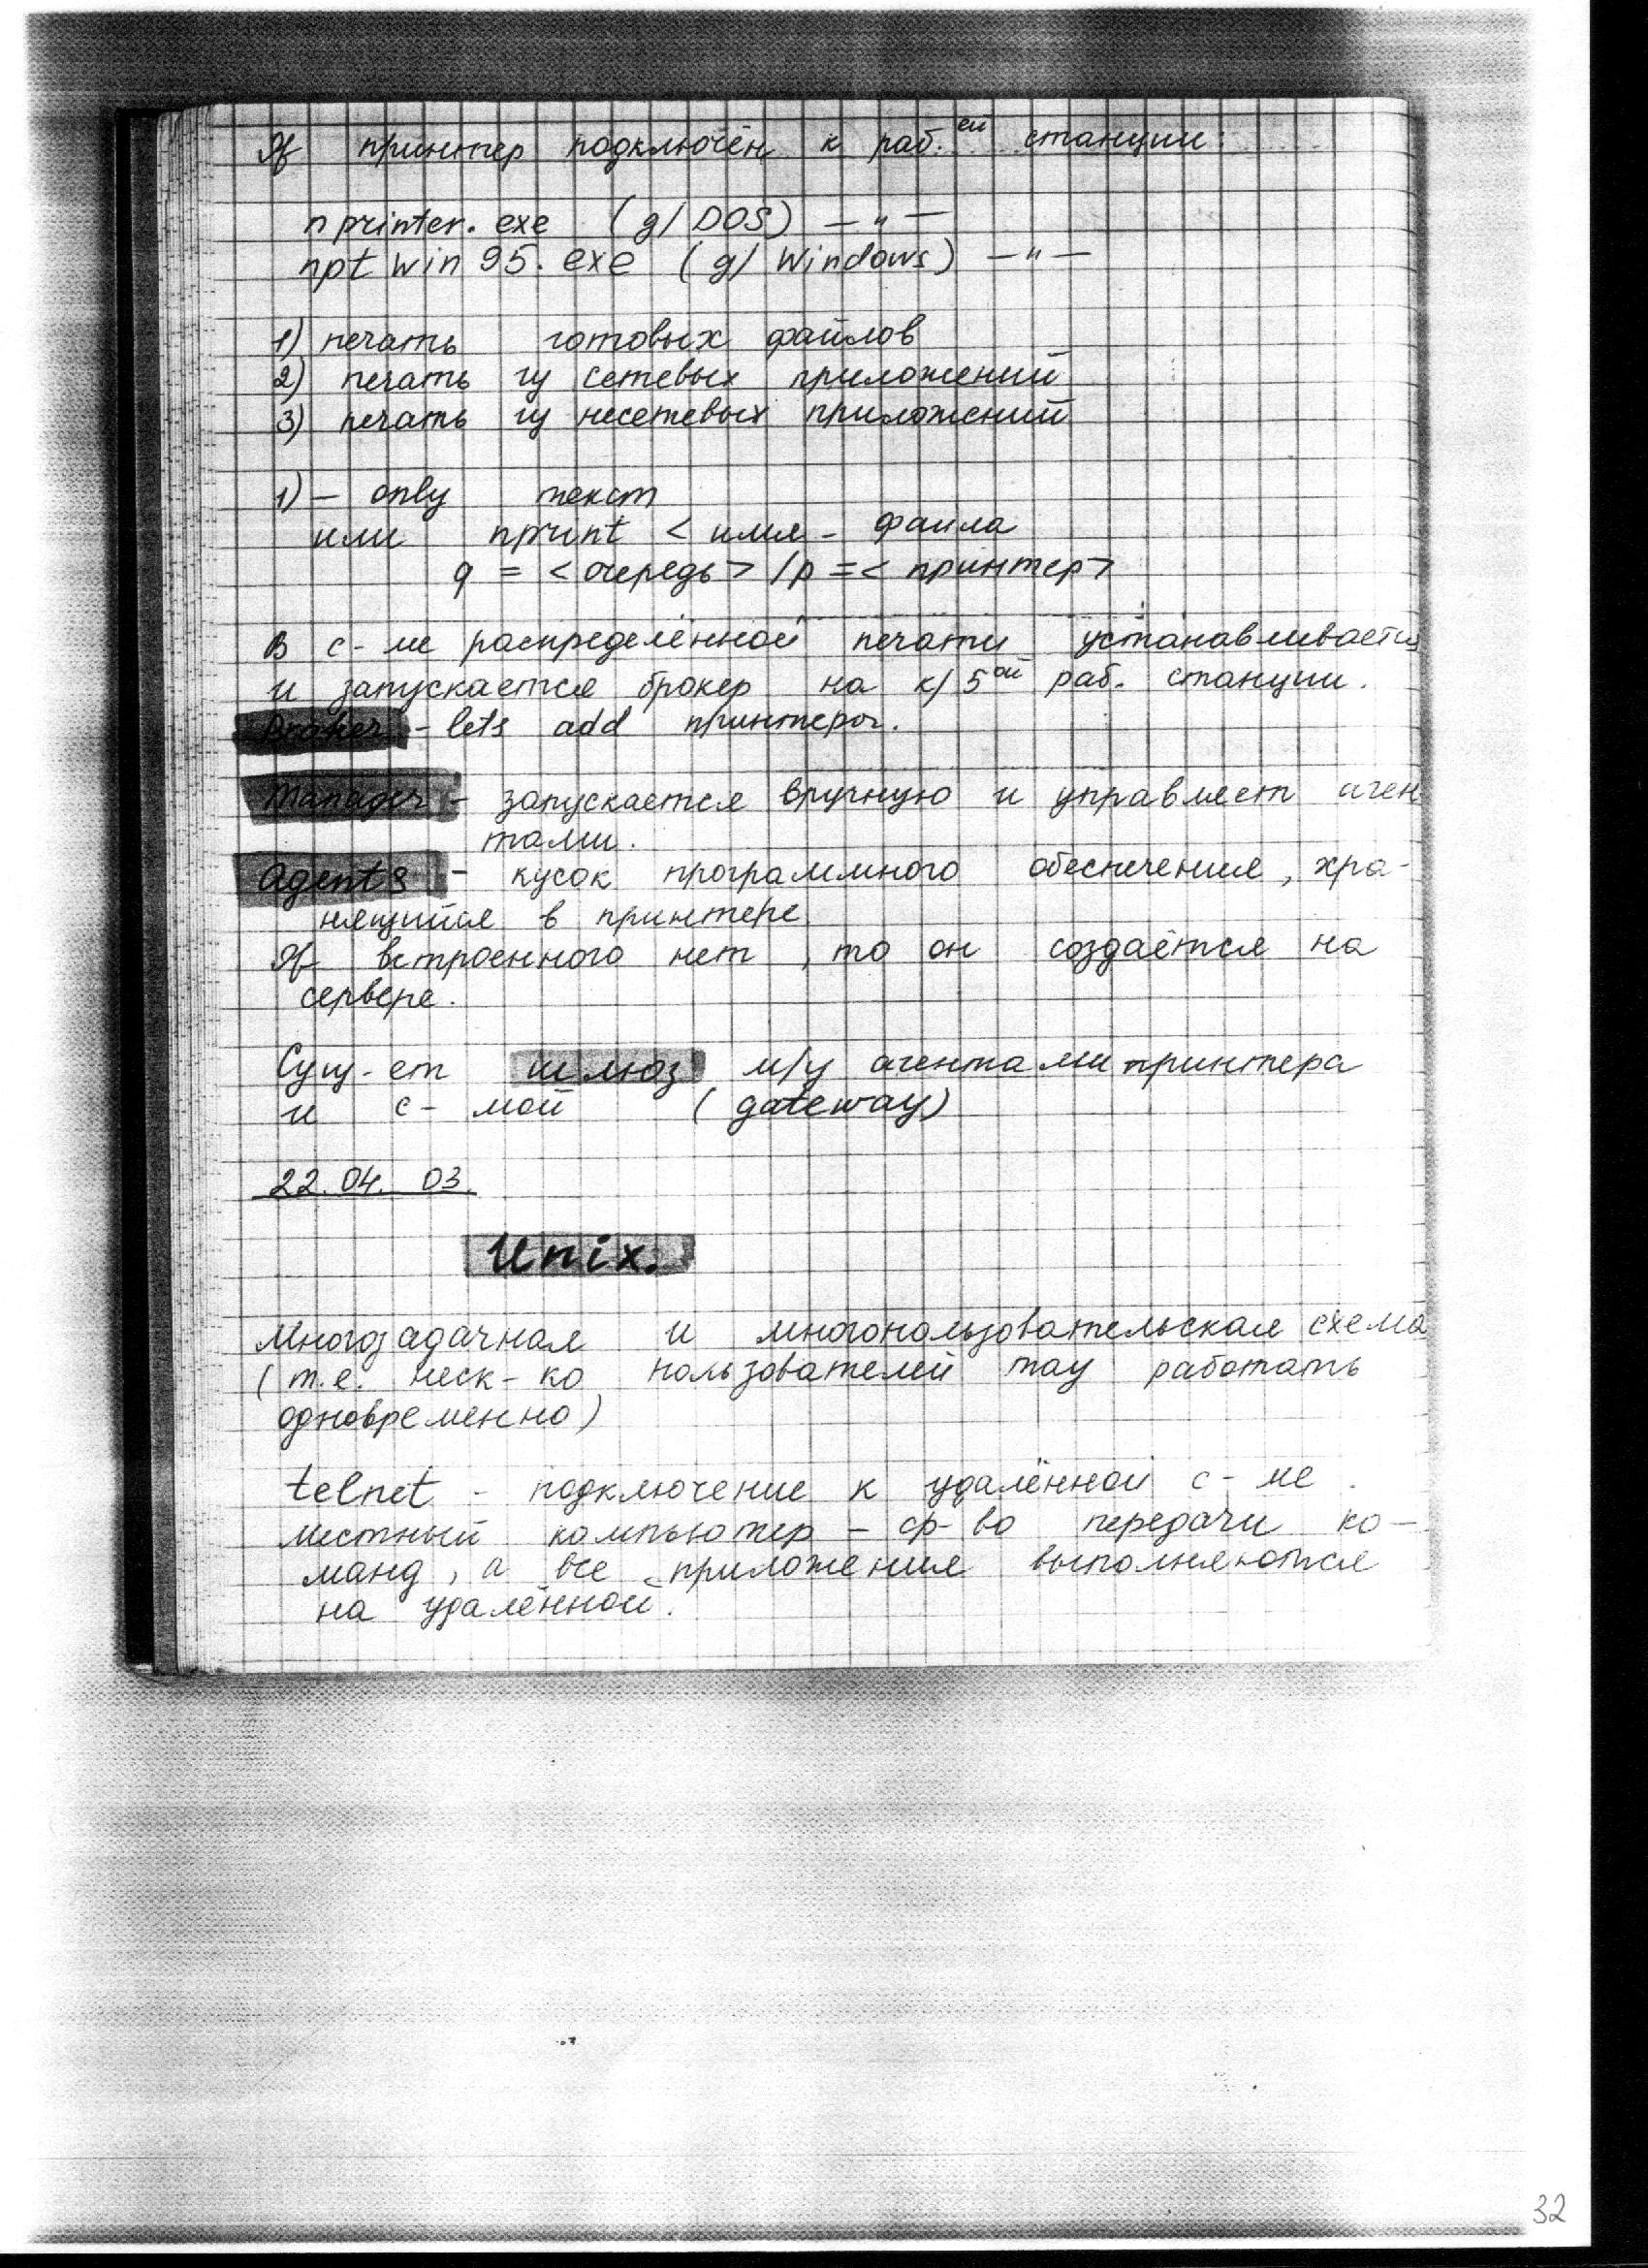 If принтер подключён к раб.ей станции:
nprinter.exe (д/ DOS) — " —
npt win 95.exe (д/ Windows) — " —
1) печать готовых файлов
2) печать из сетевых приложений
3) печать из несетевых приложений
1) – only текст
или nprint < имя - файла
q = <очередь> /p = < принтер>
В с-ме распределённой печати устанавливается
и запускается брокер на к/ 5ой раб. станции.
Broker - lets add принтеры.
Manager - запускается вручную и управляет аген
тами.
Agents - кусок программного обеспечения, хра-
нящийся в принтере
If встроенного нет, то он создаётся на
сервере.
Сущ-ет шлюз м/у агентами принтера
и с-мой (gateway)
22.04.03.
Unix.
Многозадачная и многопользовательская схема
(т.е. неск-ко пользователей могу работать
одновременно)
telnet - подключение к удалённой с-ме.
местный компьютер – ср-во передачи ко-
манд, а все приложения выполняются
на удалённой.
32